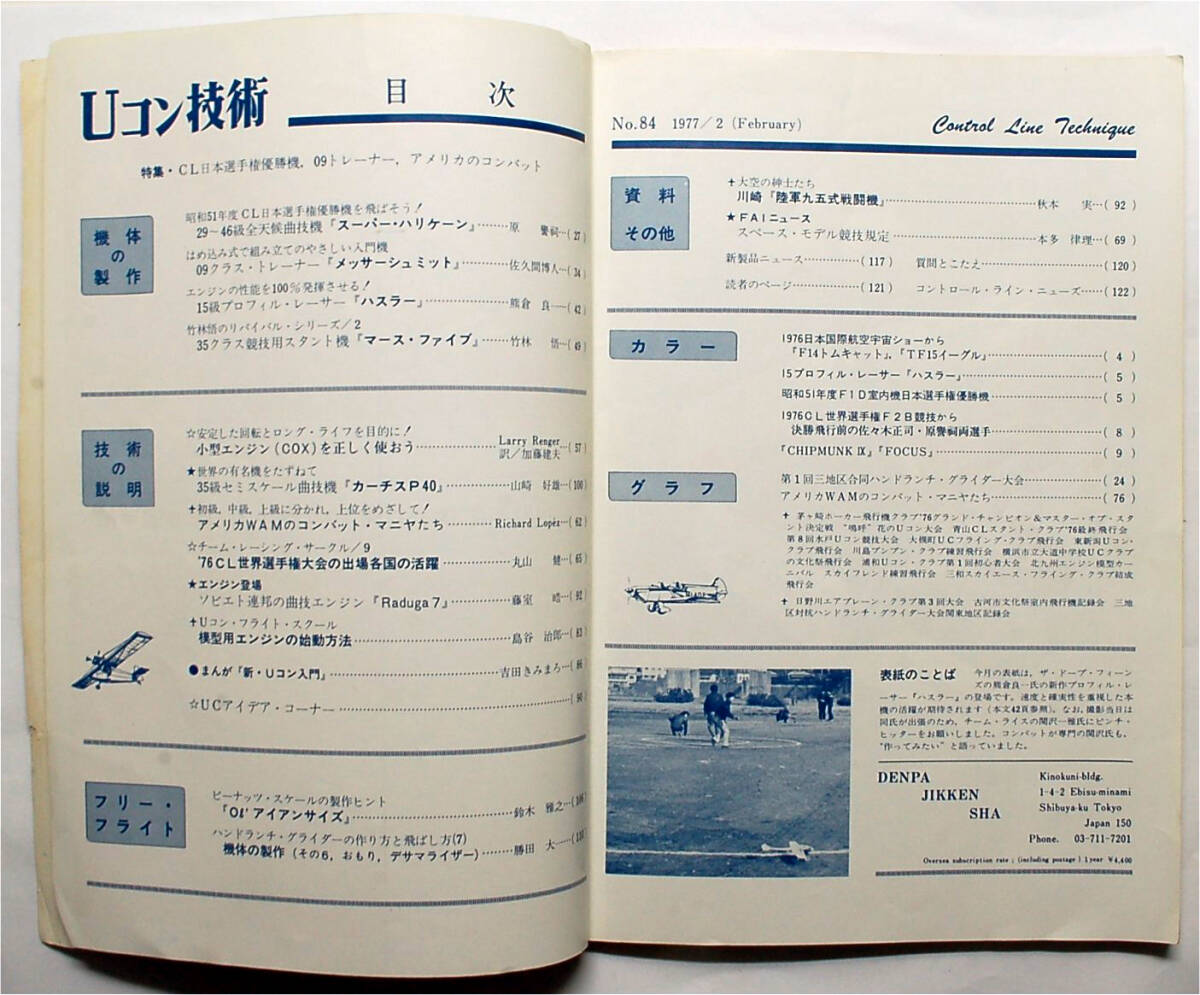 Uコン技術
目次
特集・CL日本選手権優勝機，09トレーナー，アメリカのコンバット
機体
の
製作
昭和51年度CL日本選手権優勝機を飛ばそう!
29－46級全天候曲技機『スーパー・ハリケーン』……原 詞…(27)
はめ込み式で組み立てのやさしい入門機
09クラス・トレーナー『メッサーシュミット』……佐久間博人…(34)
エンジンの性能を100％発揮させる!
15級プロフィル・レーサー『ハスラー』……熊倉 良……(42)
竹林悟のリバイバル・シリーズ/2
35クラス競技用スタント機『マース・ファイブ』……竹林 悟…(49)
技術
の
説明
☆安定した回転とロング・ライフを目的に!
小型エンジン(COX)を正しく使おう……Larry Renger…(57)
訳／加藤建夫
★世界の有名機をたずねて
35級セミスケール曲技機『カーチスP40』……山崎 好雄…(100)
✝初級，中級，上級に分かれ，上位をめざして!
アメリカWAMのコンバット・マニヤたち……Richard Lopéz…(62)
☆チーム・レーシング・サークル/9
'76CL世界選手権大会の出場各国の活躍……丸山 健…(65)
★エンジン登場
ソビエト連邦の曲技エンジン『Raduga7』……藤室 …(92)
✝Uコン・フライト・スクール
模型用エンジンの始動方法……島谷 治郎…(83)
●まんが「新・Uコン入門」……吉田きみまろ…(86)
☆UCアイデア・コーナー……(90)
フリー・
フライト
ピーナッツ・スケールの製作ヒント
『Ol'アイアンサイズ』……鈴木 雅之…
ハンドランチ・グライダーの作り方と飛ばし方(7)
機体の製作（その6，おもり，デサマライザー）……勝田 大……
No.84 1977／2 (February)
Control Line Technique
資料
その他
✝大空の紳士たち
川崎『陸軍九五式戦闘機』……秋本 実…(92)
★FAIニュース
スペース・モデル競技規定……本多 律理…(69)
新製品ニュース……(117) 質問とこたえ……(120)
読者のページ……(121) コントロール・ライン・ニューズ……(122)
カラー
1976日本国際航空宇宙ショーから
『F14トムキャット』，『TF15イーグル』……(4)
15プロフィル・レーサー『ハスラー』……(5)
昭和51年度F1D室内機日本選手権優勝機……(5)
1976CL世界選手権F2B競技から
決勝飛行前の佐々木正司・原詞両選手……(8)
『CHIPMUNK Ⅸ』『FOCUS』……(9)
グラフ
第1回三地区合同ハンドランチ・グライダー大会……(24)
アメリカWAMのコンバット・マニヤたち……(76)
✝ 茅ヶ崎ホーカー飛行機クラブ'76グランド・チャンピオン＆マスター・オブ・スタ
ント決定戦 "嗚呼"花のUコン大会 青山CLスタント・クラブ'76最終飛行会
第8回水戸Uコン競技大会 大槻町UCフライング・クラブ飛行会 東新潟Uコン・
クラブ飛行会 川島ブンブン・クラブ練習飛行会 横浜市立大道中学校UCクラブ
の文化祭飛行会 浦和Uコン・クラブ第1回初心者大会 北九州エンジン模型カー
ニバル スカイフレンド練習飛行会 三和スカイエース・フライング・クラブ結成
飛行会
✝ 日野川エアプレーン・クラブ第3回大会 古河市文化祭室内飛行機記録会 三地
区対抗ハンドランチ・グライダー大会関東地区記録会
表紙のことば 今月の表紙は，ザ・ドープ・フィーン
ズの熊倉良一氏の新作プロフィル・レ
ーサー『ハスラー』の登場です。速度と確実性を重視した本
機の活躍が期待されます（本文42頁参照）。なお，撮影当日は
同氏が出張のため，チーム・ライスの関沢一雅氏にピンチ・
ヒッターをお願いしました。コンバットが専門の関沢氏も，
"作ってみたい"と語っていました。
DENPA
JIKKEN
SHA
Kinokuni-bldg.
1-4-2 Ebisu-minami
Shibuya-ku Tokyo
Japan 150
Phone. 03-711-7201
Oversea subscription rate ; (including postage) 1 year ¥4,400